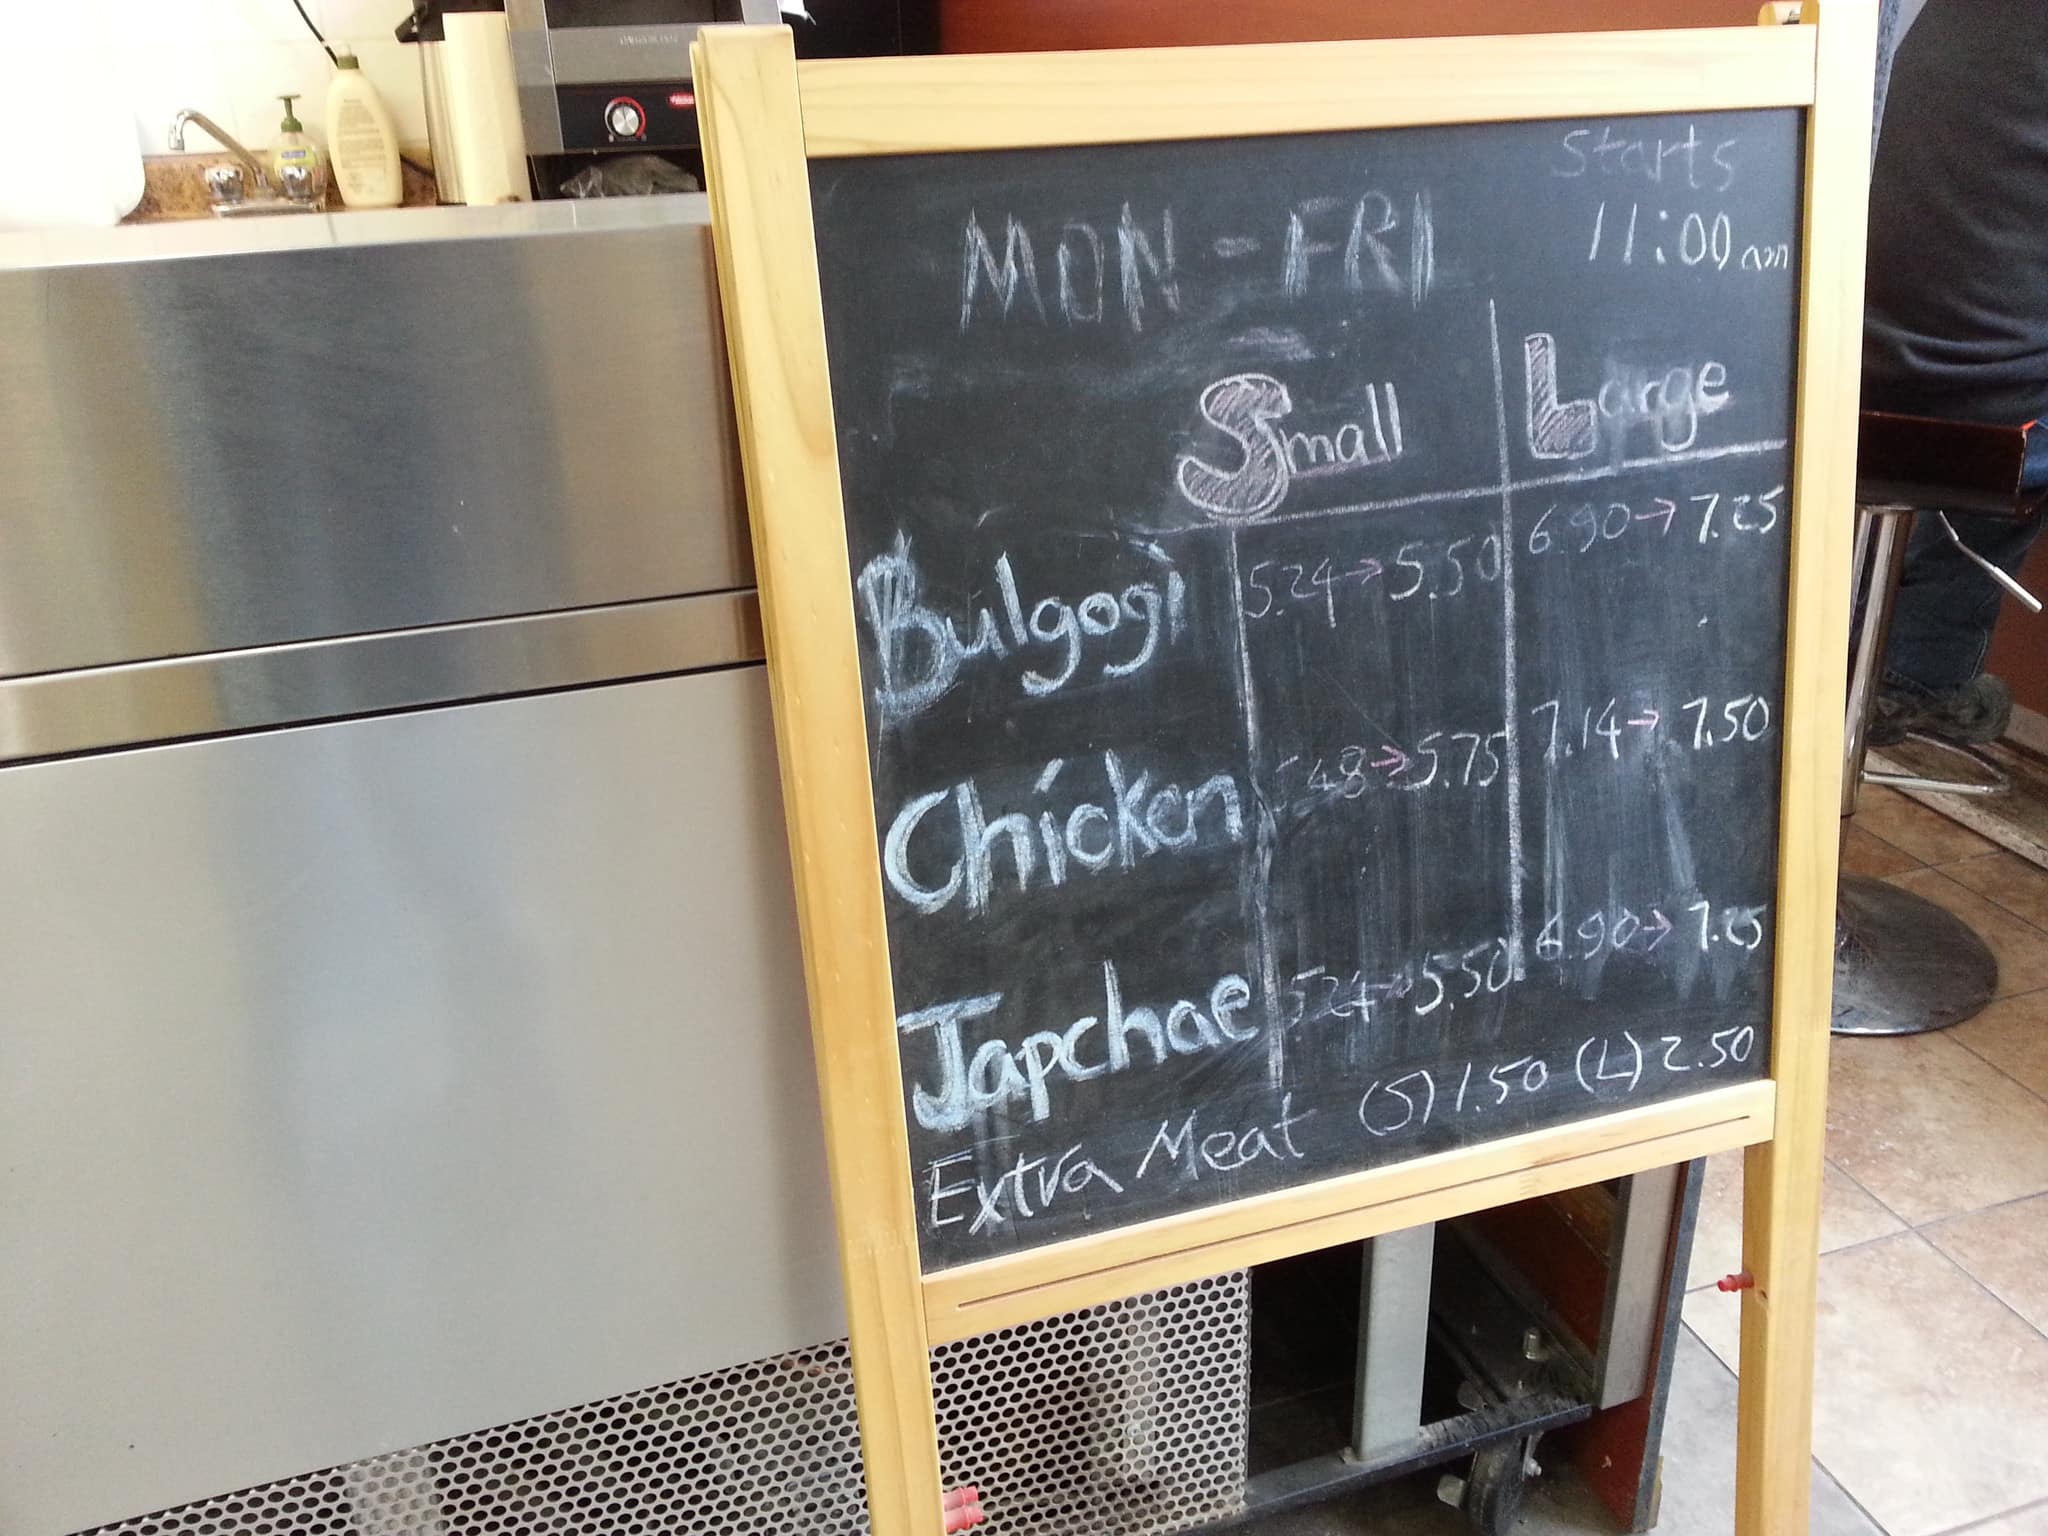 Starts
11:00 am
MON-FRI
Small Large
Bulgogi 5.24→5.50 6.90→7.25
Chicken .48→5.75 7.14→7.50
Japchae 5.24→5.50 6.90→7.25
Extra Meat (S) 1.50 (L) 2.50